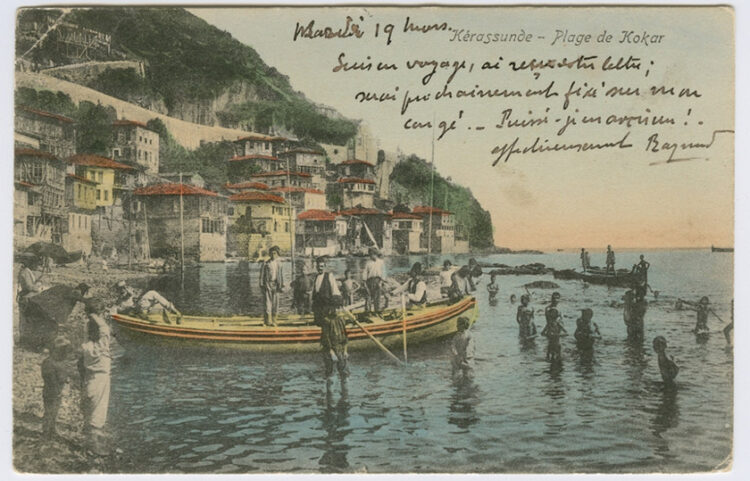 Mardi 19 mars.
Kérassunde – Plage de Kokar
Suis en voyage, ai reçu votre lettre;
serai prochainement fixé sur mon
congé. – Puissé-je en avoir un! –
affectueusement Raymond